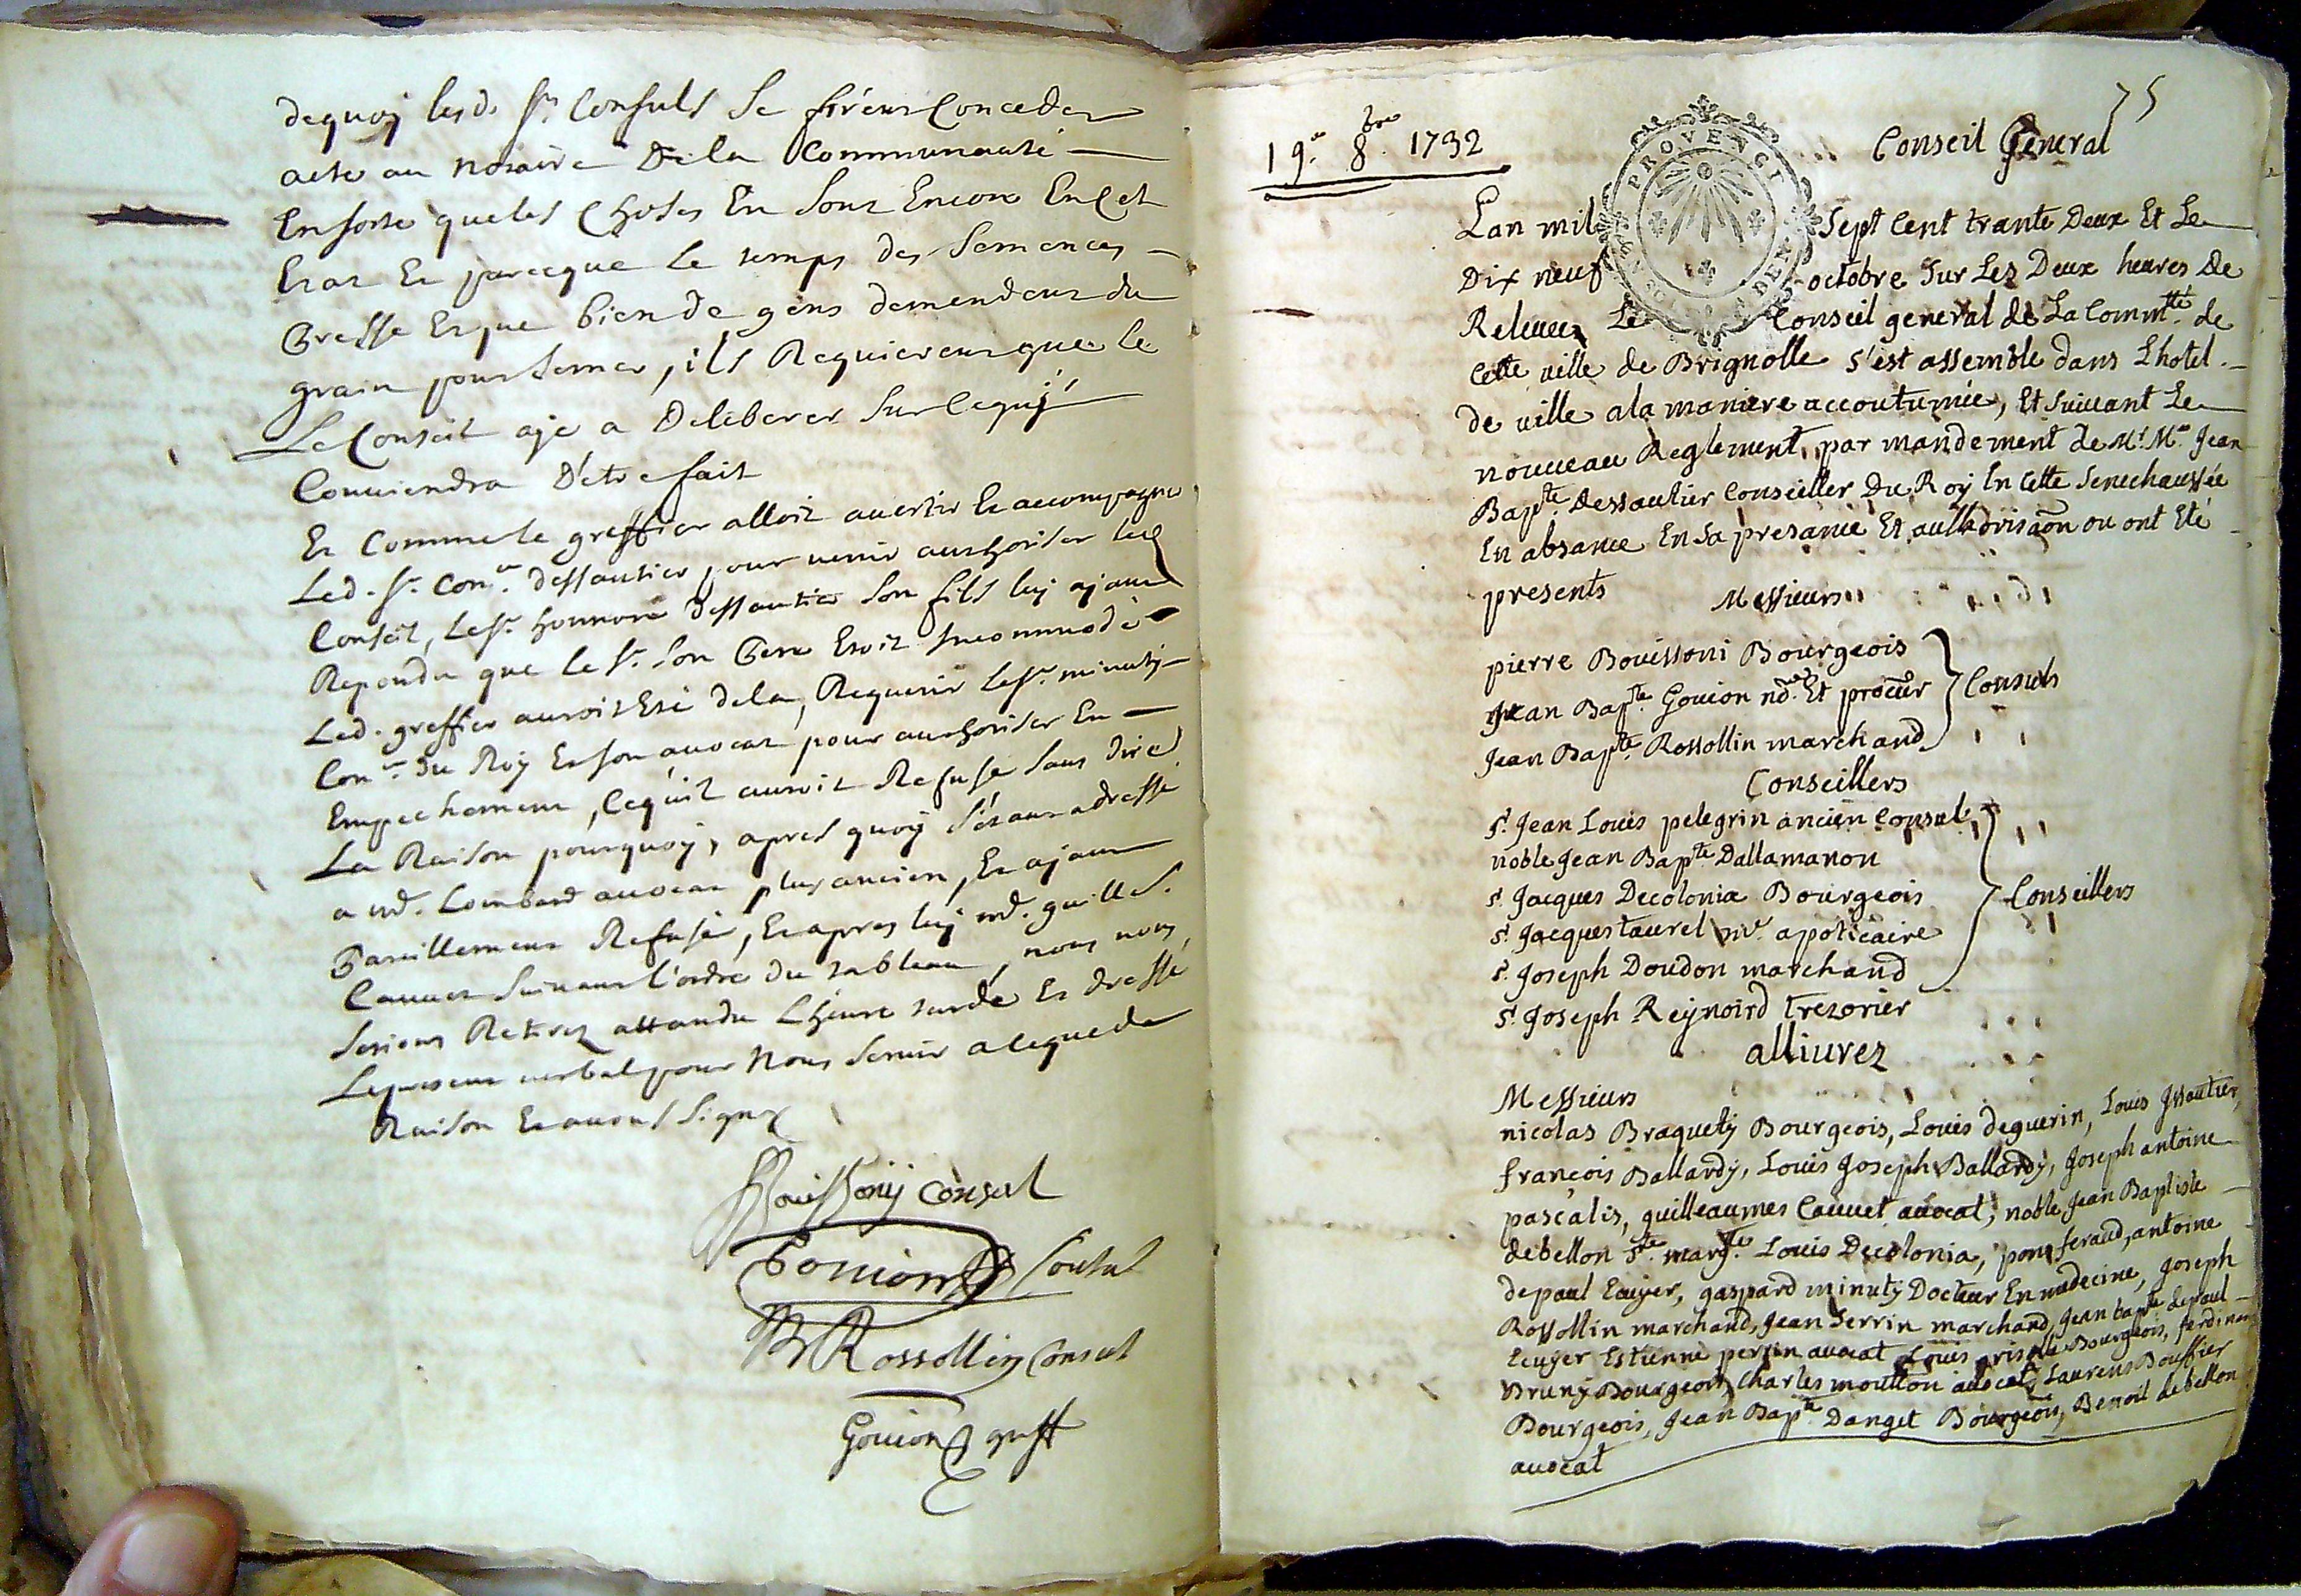 dequoy lesd. Srs Consuls se fireut Conceder
acte au notaire De la Communauté
Ensorte que les Choses En sont Encore En Cet
Etat Et parceque Le temps des Semences
presse Et que bien de gens demendent du
grain pour semer, ils Requiereut que le
Le Conseil aje a Deliberer Sur Cequy
Conviendra D'etre fait
Et Comme le greffier alloit avertir Et accompagne
Led. Sr. Coner. dessautier pour venir authoriser led
Conseil, Le Sr. honnoré dessautier Son fils luy ajant
Repondu que le Sr. Son Pere Etoit Incommodé
Led. greffier auroit Eté dela, Requerir le Sr. minuty
Coner. du Roy Et son avocat pour authoriser En
Empechement, Cequ'il auroit Refusé Sans dire
La Raison pourquoy, apres quoy s'étant adressé
a md. Lombard avocat plus ancien, Et ajant
Pareillement Refusé, Et apres luy md. guilleS.
Cauvet Suivant l'ordre du tableau, nous nous
Serions Retirez attandu L'heure tarde Et dressé
Le present verbal pour Nous Servir a leque de
Raison Et avons Signé
Bouissony Consul
Gouion Consul
JB Rossollin Consul
Gouion greff
75
19e. 8bre. 1732
Conseil General
PROVENCE
Lan mil Sept Cent trante Deux Et Le
Dix neuf octobre Sur Les Deux heures de
Relevee Le Conseil general de La Commté. de
Cette ville de Brignolle s'est assemble dans Lhotel
de ville ala maniere accoutumée, Et Suivant Le
nouveau Reglement, par mandement de Mr. Me. Jean
Bapte. Dessautier Conseiller Du Roy En Cette Senechaussée
En absance En Sa presance Et authorisaon ou ont Eté
presents Messieurs
pierre Bouissoni Bourgeois
Jean Bapte. Gouion nore. Et procur Consuls
Jean Bapte. Rossollin marchand
Conseillers
Sr. Jean Louis pelegrin ancien Consul
noble Jean Bapte Dallamanon
Sr. Jacques Decolonia Bourgeois Conseillers
Sr. Jacques taurel me. apoticaire
Sr. Joseph Doudon marchand
Sr. Joseph Reynoird trezorier
allivrez
Messieurs
nicolas Braquety Bourgeois, Louis deguerin, Louis Jssautier,
françois Ballardy, Louis Joseph Ballardy, Joseph antoine
pascalis, guilleaumes Cauvet avocat, noble Jean Baptiste
debellon Ste. margte. Louis Decolonia, pons feraud, antoine
depaul Ecuyer, gaspard minuty Docteur En medecine, Joseph
Rossollin marchand, Jean Serrin marchand, Jean bapte depaul
Ecuyer Estienne perrin avocat Louis grisolle Bourgeois, ferdinan
Bruny Bourgeois, Charles moutton avocat, Laurens Bouffier
Bourgeois, Jean Bapte. Danget Bourgeois, Benoit debellon
avocat